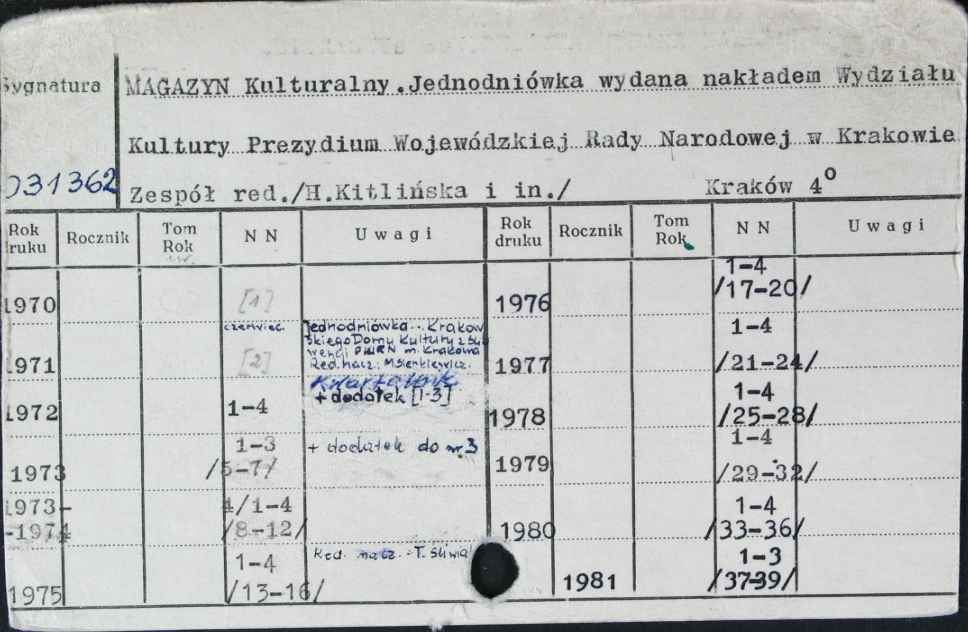 Sygnatura
MAGAZYN Kulturalny.Jednodniówka wydana nakładem Wydziału
Kultury Prezydium Wojewódzkiej Rady Narodowej w Krakowie
031362
Zespół red./H.Kitlińska i in./ Kraków 4°
Rok druku Rocznik Tom Rok NN Uwagi Rok druku Rocznik Tom Rok NN Uwagi
1970 [1] 1976 1-4 /17-20/
czerwiec Jednodniówka Krakow
skiego Domu Kultury z su
wencji PWRN m. Krakowa
Red. nacz. M. Sienkiewicz.
1971 [2] 1977 1-4 /21-24/
Kwartalnik
+ dodatek [1-3]
1972 1-4 1978 1-4 /25-28/
1973 1-3 /5-7/ + dodatek do nr 3 1979 1-4 /29-32/
1973-
-1974 4/1-4 /8-12/ 1980 1-4 /33-36/
1975 1-4 /13-16/ Red. nacz. T. 1981 1-3 /37-39/